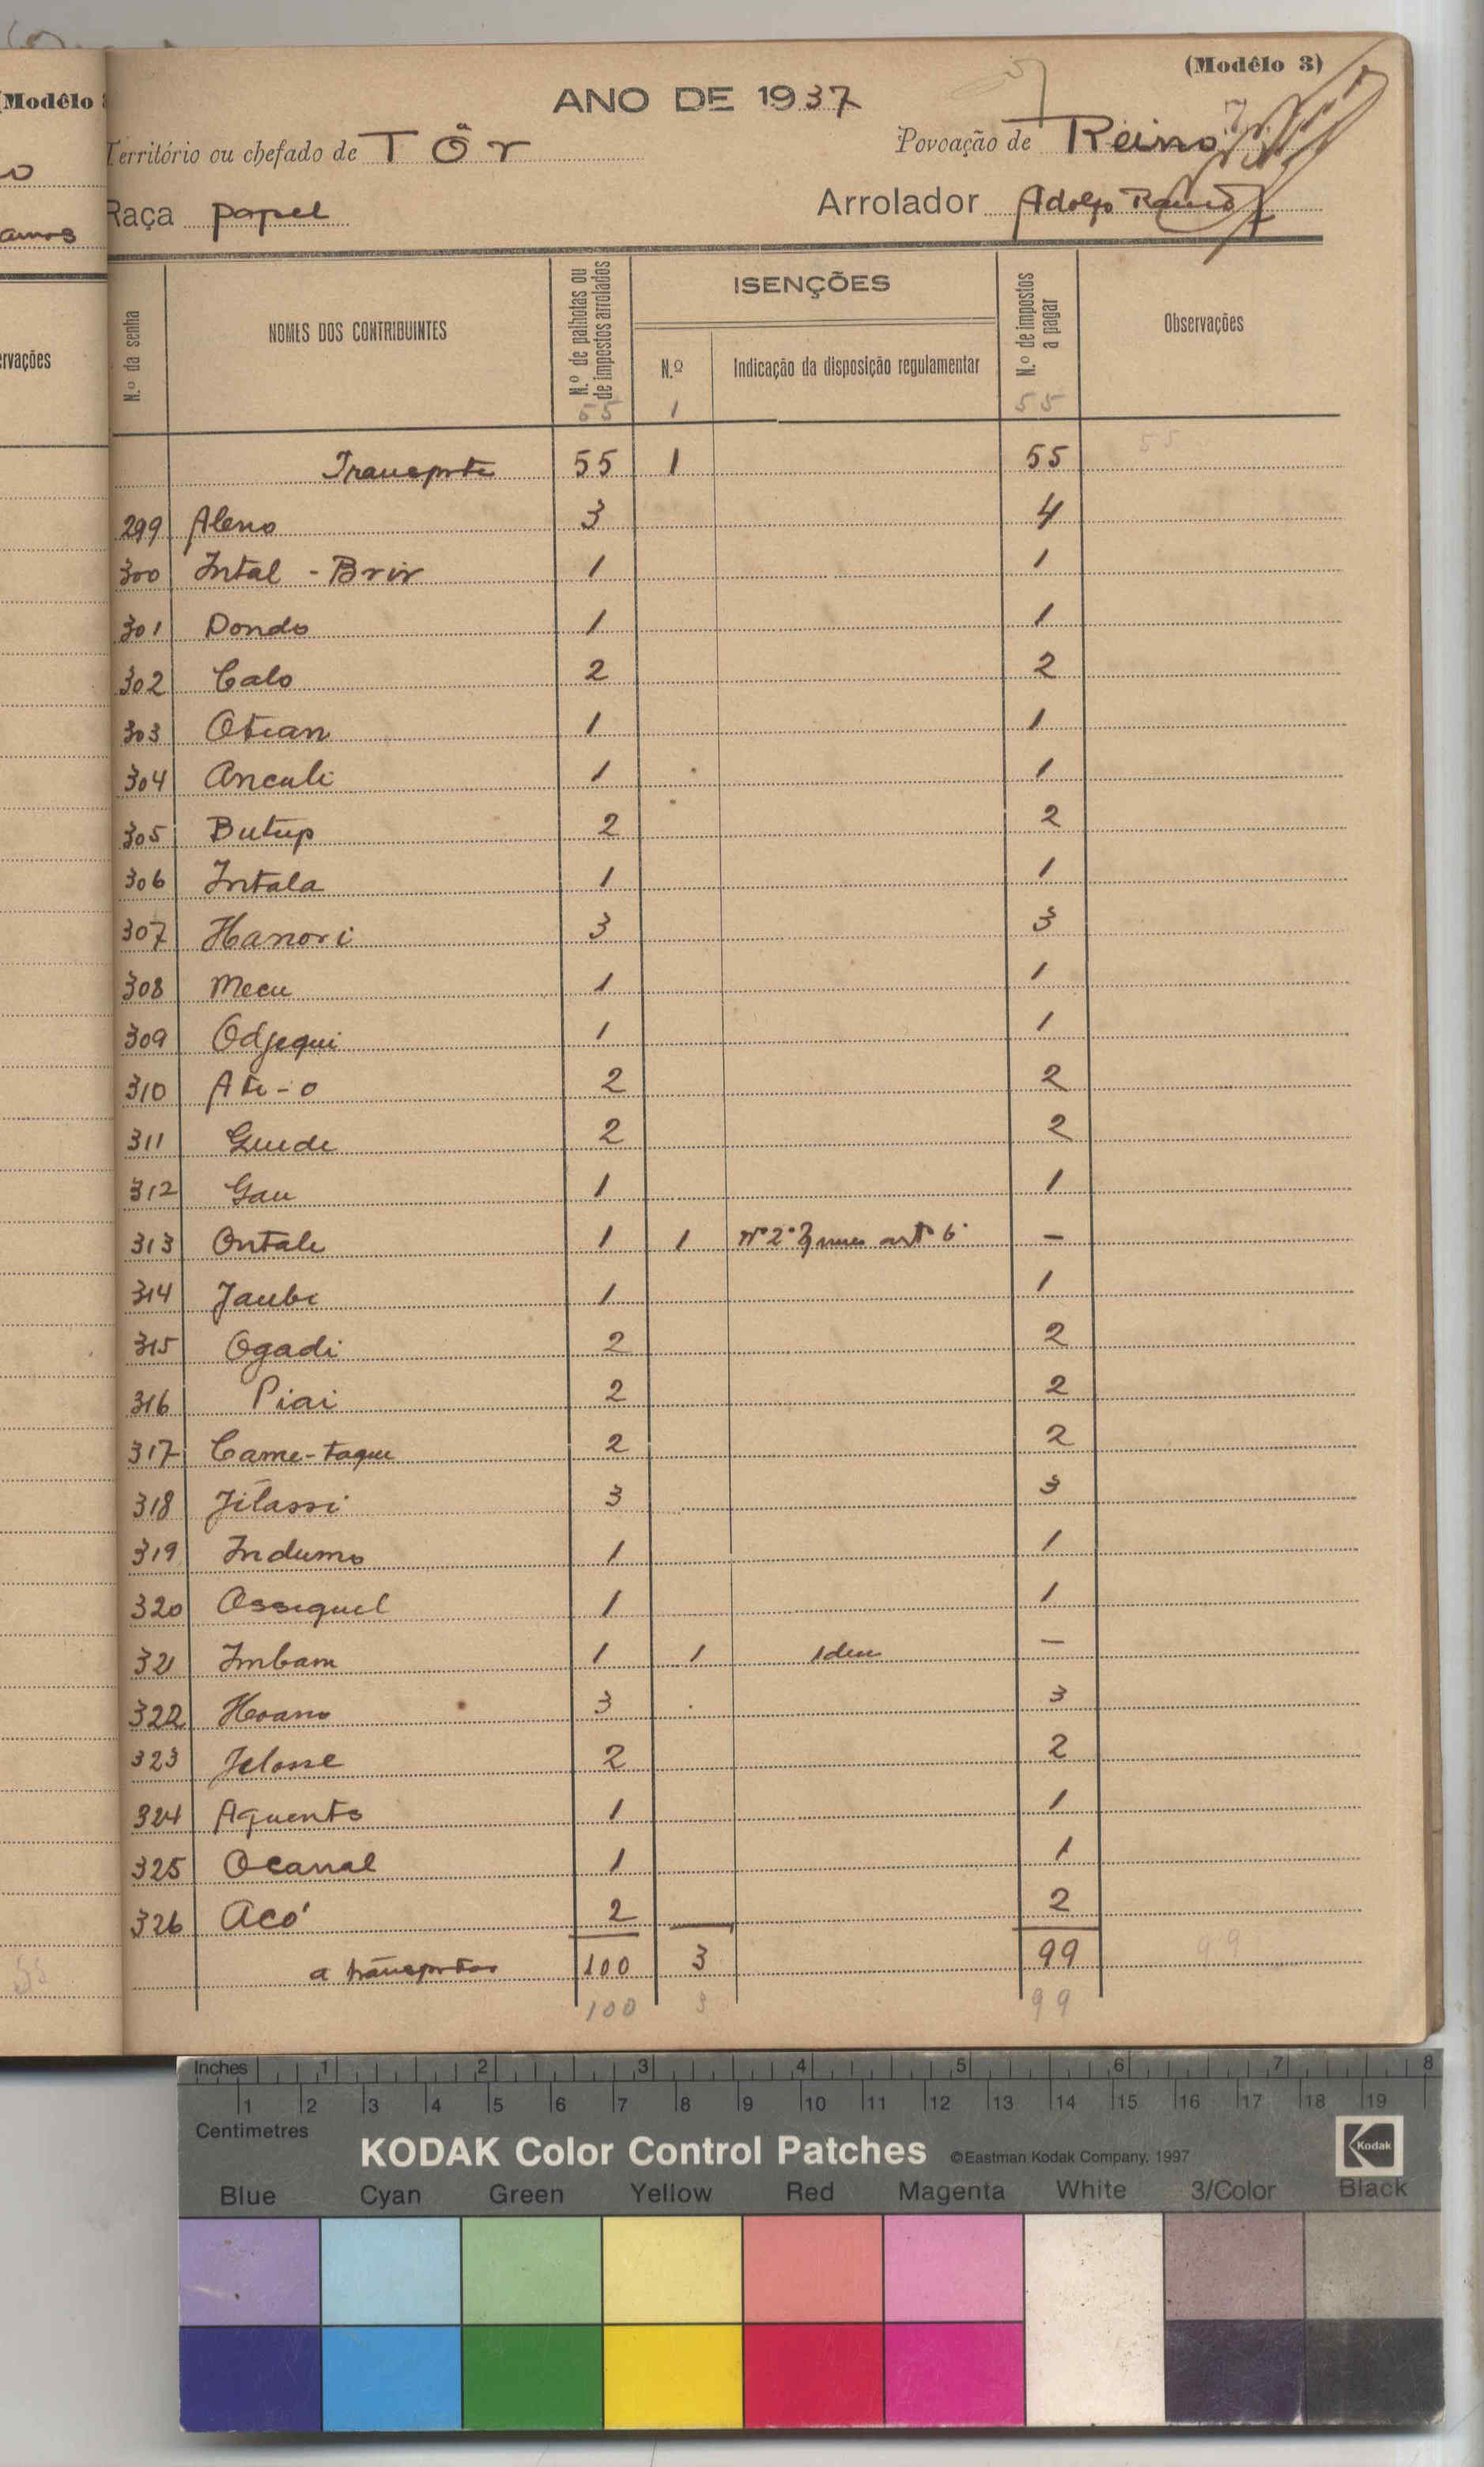 (Modêlo 3)
ANO DE 1937
Território ou chefado de Tôr
Povoação de Reino
Raça papel
Arrolador Adolfo Ramos
N.º da senha
NOMES DOS CONTRIBUINTES
N.º de palhotas ou de impostos arrolados
ISENÇÕES
N.º
Indicação da disposição regulamentar
N.º de impostos a pagar
Observações
55 1 55
Transporte 55 1 55 55
299 Aleno 3 4
300 Intal - Brir 1 1
301 Dondo 1 1
302 Calo 2 2
303 Otian 1 1
304 Anculi 1 1
305 Butup 2 2
306 Intala 1 1
307 Hanori 3 3
308 Mecu 1 1
309 Odjequi 1 1
310 Ate-o 2 2
311 Guede 2 2
312 Gau 1 1
313 Ontale 1 1 Nº 2º art 6º —
314 Jaube 1 1
315 Ogadi 2 2
316 Piai 2 2
317 Came-taque 2 2
318 Jilassi 3 3
319 Indumo 1 1
320 Ossequel 1 1
321 Imbam 1 1 Idem —
322 Hoano 3 3
323 Jelosse 2 2
324 Aquento 1 1
325 Ocanal 1 1
326 Acó 2 2
a transportar 100 3 99 99
100 3 99
(Modêlo
amos
ervações
55
Inches 1 2 3 4 5 6 7 8
1 2 3 4 5 6 7 8 9 10 11 12 13 14 15 16 17 18 19
Centimetres
KODAK Color Control Patches ©Eastman Kodak Company, 1997 Kodak
Blue Cyan Green Yellow Red Magenta White 3/Color Black